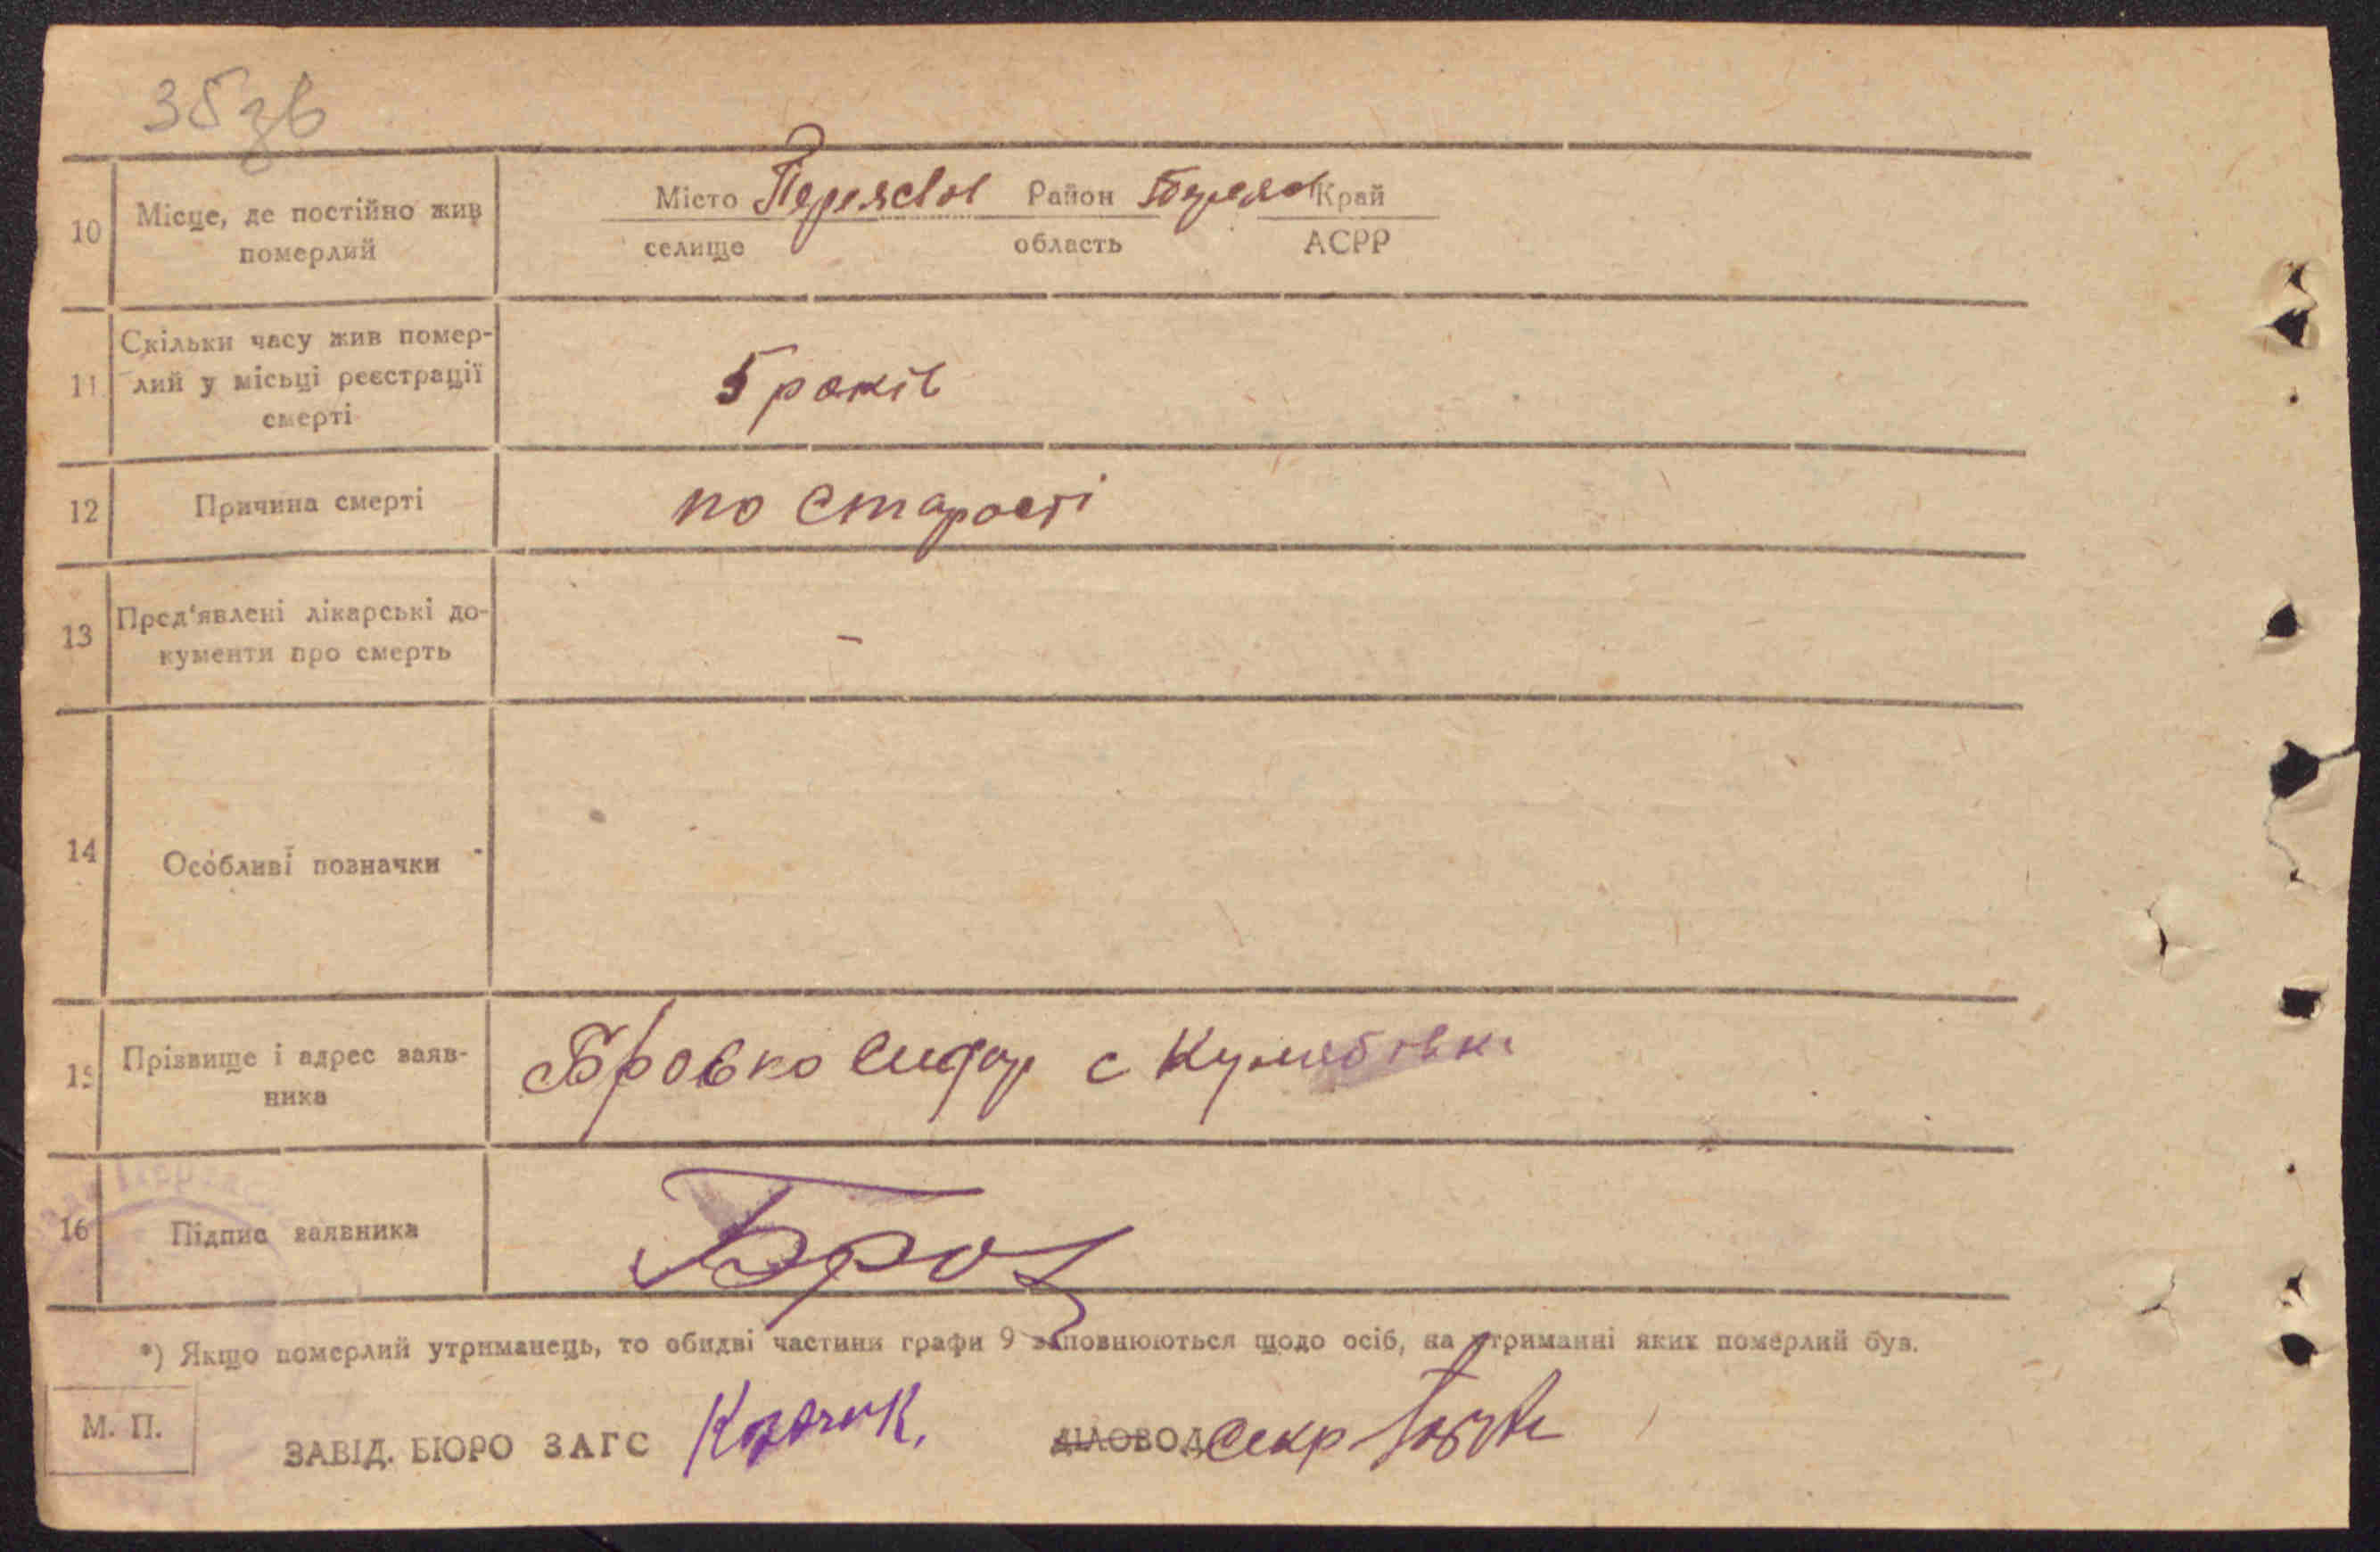 35 зв
10 Місце, де постійно жив померлий
Місто Переяслов Район Край
селище область АСРР
11 Скільки часу жив помер-
лий у місьці реєстрації
смерті
5 років
12 Причина смерті по старості
13 Пред'явлені лікарські до-
кументи про смерть
–
14 Особливі позначки
15 Прізвище і адрес заяв-
ника
Бровко Сидор с
16 Підпис заявника
*) Якщо померлий утриманець, то обидві частини графи 9 заповнюються щодо осіб, на утриманні яких померлий був.
М. П.
ЗАВІД. БЮРО ЗАГС ДІЛОВОД секр